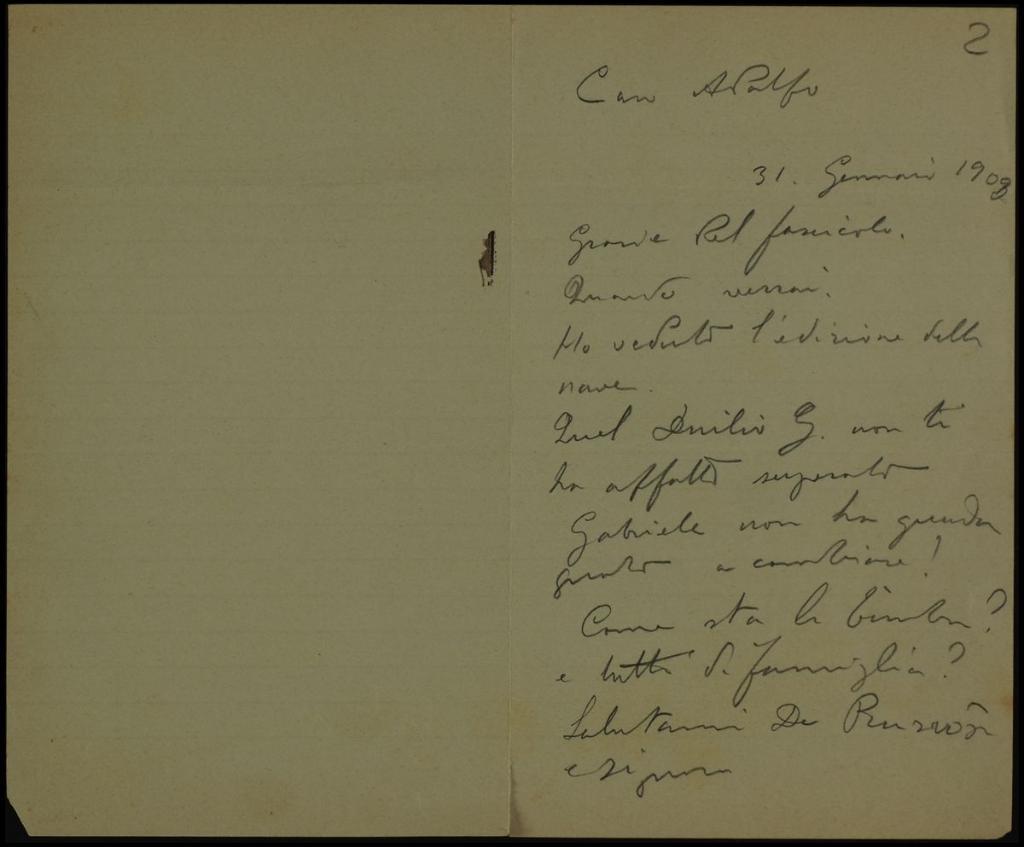 2
Caro Adolfo
31. Gennaio 1908
Grazie del fascicolo.
Quando verrai.
Ho veduto l'edizione della
nave.
Quel Duilio G. non ti
ha affatto superato
Gabriele non ha guada
gnato a cambiare!
Come sta la bimba?
e tutti di famiglia?
Salutami De
e signora